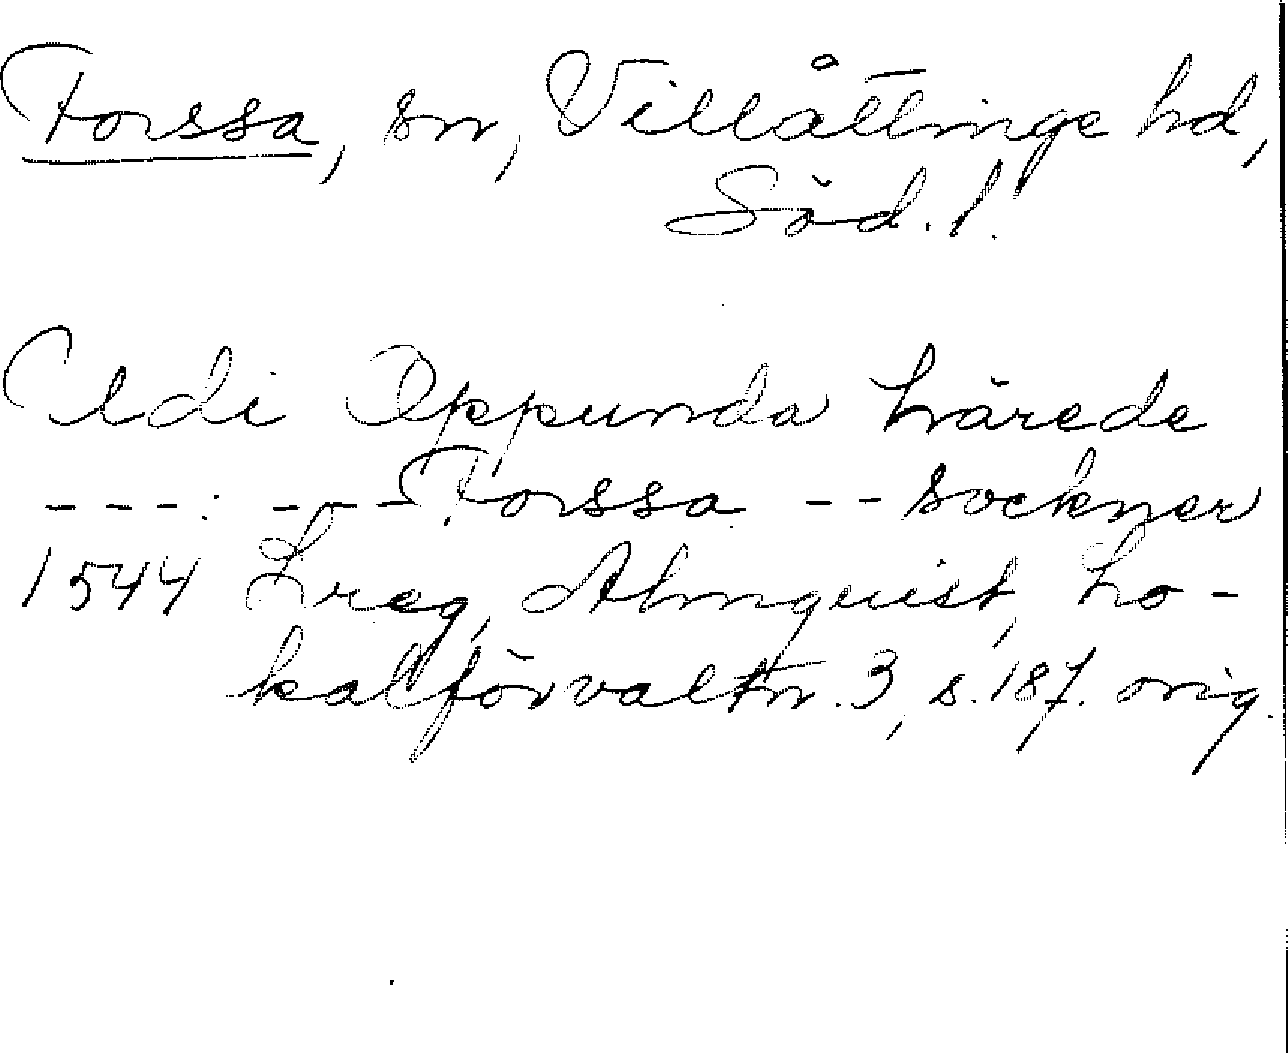 Forssa, sn, Villåttinge hd,
Söd. l.
Udi Oppunda härede
---. --- Forssa -- sockner
1544 Lreg, Almquist, Lo-
kalförvaltn. 3, s. 187. orig.